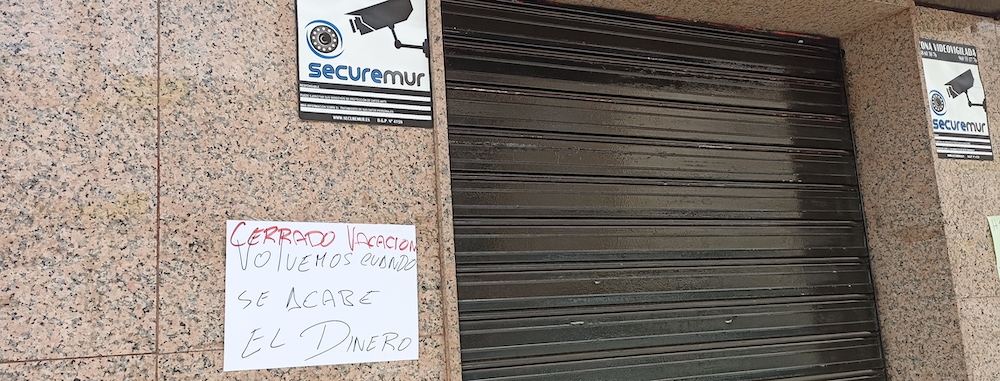 securemur
WWW.SECUREMUR.ES D.G.P. Nº 4159
CERRADO VACACION
VOLVEMOS CUANDO
SE ACABE
EL DINERO
ONA VIDEOVIGILADA
securemur